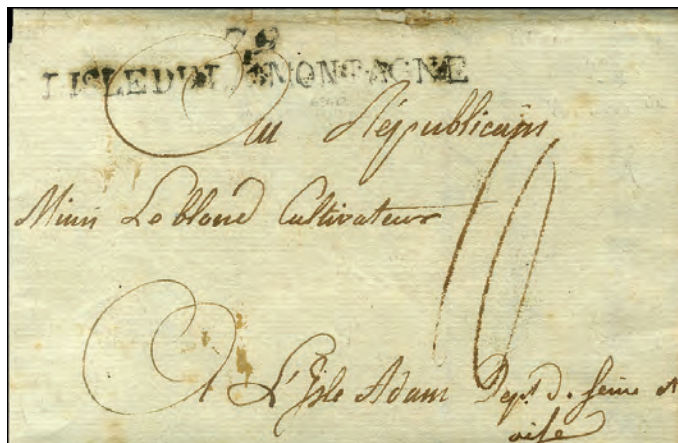 72
LISLE DE LA MONTAGNE
Au Républicain
Le blond Cultivateur
10
A L'Isle Adam Dept. de Seine et
oise